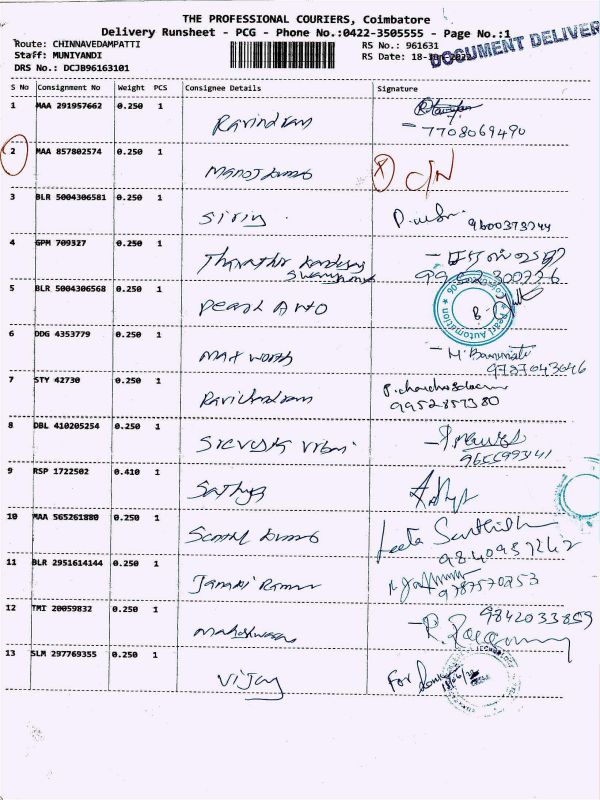 THE PROFESSIONAL COURIERS, Coimbatore
Delivery Runsheet - PCG - Phone No.:0422-3505555 - Page No.:1
DOCUMENT DELIVER
Route: CHINNAVEDAMPATTI RS No.: 961631
Staff: MUNIYANDI RS Date: 18-
DRS No.: DCJB96163101
S No Consignment No Weight PCS Consignee Details Signature
1 MAA 291957662 0.250 1
Ravindran 7708069490
2 MAA 857802574 0.250 1
Manoj kumar C/N
3 BLR 5004306581 0.250 1
Siriy 9600373744
4 GPM 709327 0.250 1
9952300776
5 BLR 5004306568 0.250 1
Pearl Auto
Pearl Automation
6 DDG 4353779 0.250 1
Max worth 9787043646
7 STY 42730 0.250 1
Ravichandran 9952857380
8 DBL 410205254 0.250 1
9655599341
9 RSP 1722502 0.410 1
Sathya
10 MAA 565261880 0.250 1
Senthil kumar 9840957262
11 BLR 2951614144 0.250 1
Janaki Raman 9787570253
12 TMI 20059832 0.250 1
Maheshwaran 9842033859
13 SLM 297769355 0.250 1
Vijay For